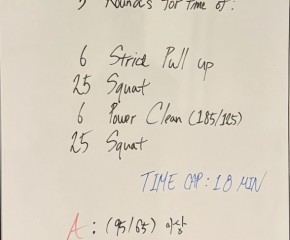 Rounds for time of:
6 Strict Pull up
25 Squat
6 Power Clean (185/125)
25 Squat
TIME CAP: 18 MIN
A: (95/65) 이상